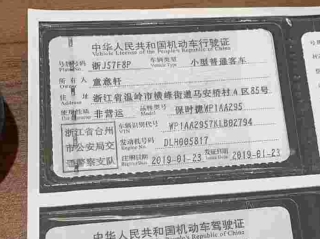 中华人民共和国机动车行驶证
Vehicle License of the People's Republic of China
号牌号码 浙JS7F8P 车辆类型 小型普通客车
Plate No. Vehicle Type
所有人 童意轩
Owner
住址 浙江省温岭市横峰街道马安桥村A区85号
Address
使用性质 非营运 品牌型号 保时捷WP1AA295
Use Character Model
浙江省台州 车辆识别代号 WP1AA2957KLB02794
VIN
市公安局交 发动机号码 DLH005817
Engine No.
通警察支队 注册日期 2019-01-23 发证日期 2019-01-23
Register Date Issue Date
中华人民共和国机动车驾驶证